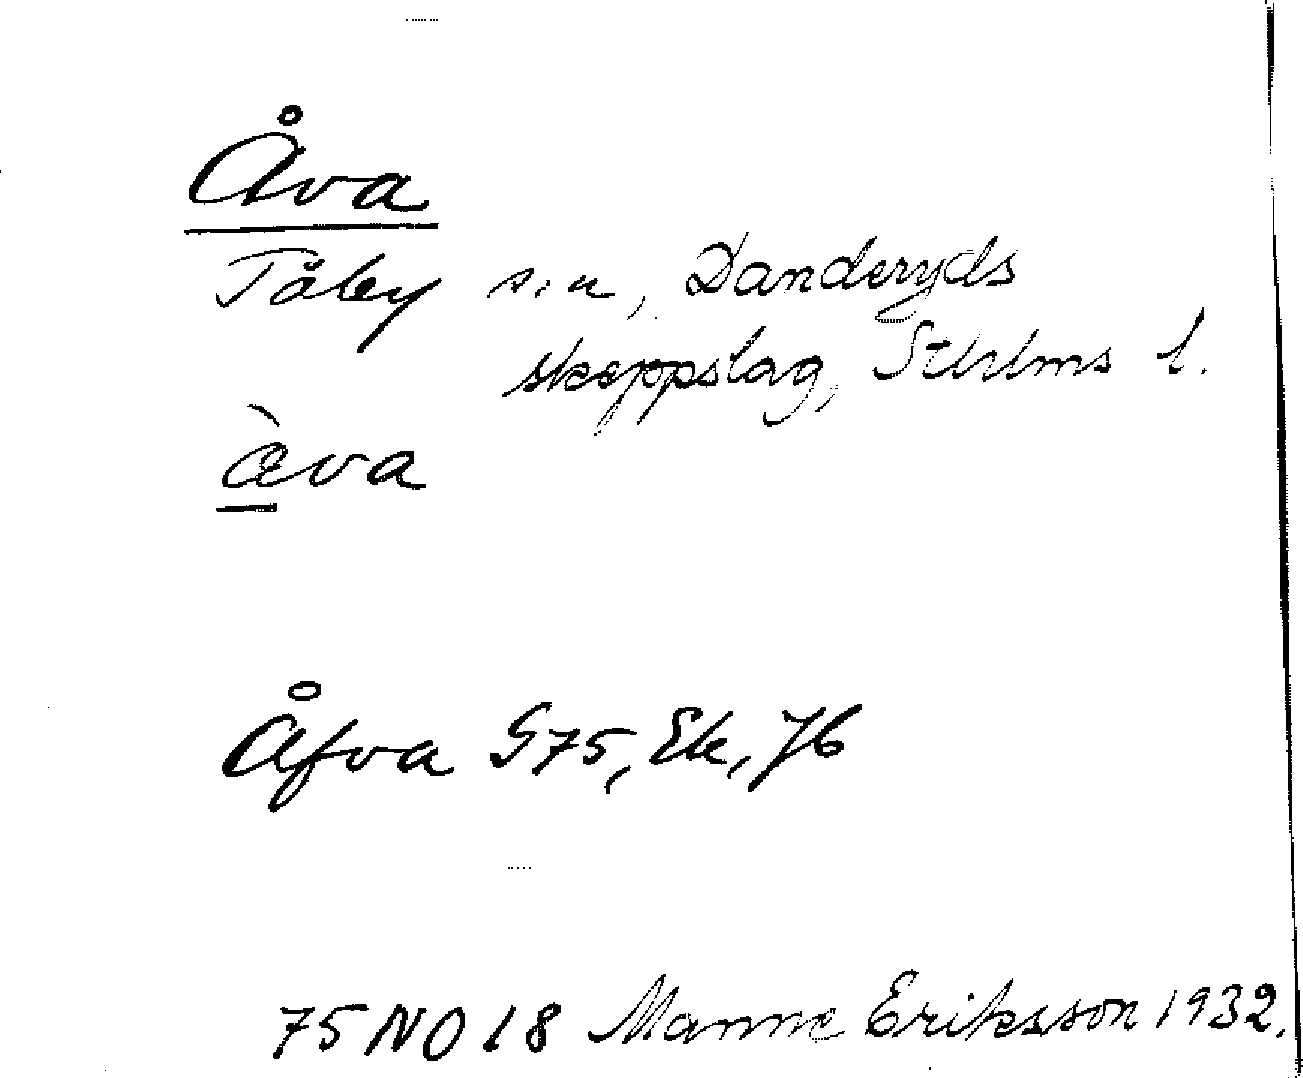 Åva
Täby sn, Danderyds
skeppslag, Sthlms l.
àva
Åfva G75, Ek, J6
75 NO 18 Manne Eriksson 1932.